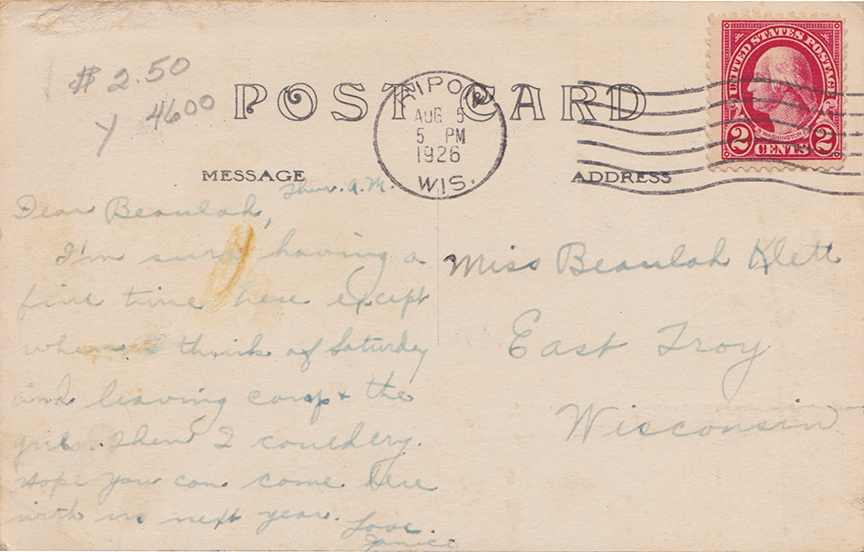 $ 2.50
y 4600
POST CARD
RIPON
AUG 5
5 PM
1926
WIS.
UNITED STATES POSTAGE
WASHINGTON
2 CENTS 2
MESSAGE
ADDRESS
Thur. A.M.
Dear Beaulah,
I'm sure having a
fine time here except
when I think of Saturday
and leaving camp & the
girls. Then I could cry.
Hope you can come here
with us next year. Love.
Janice
Miss Beaulah Klett
East Troy
Wisconsin